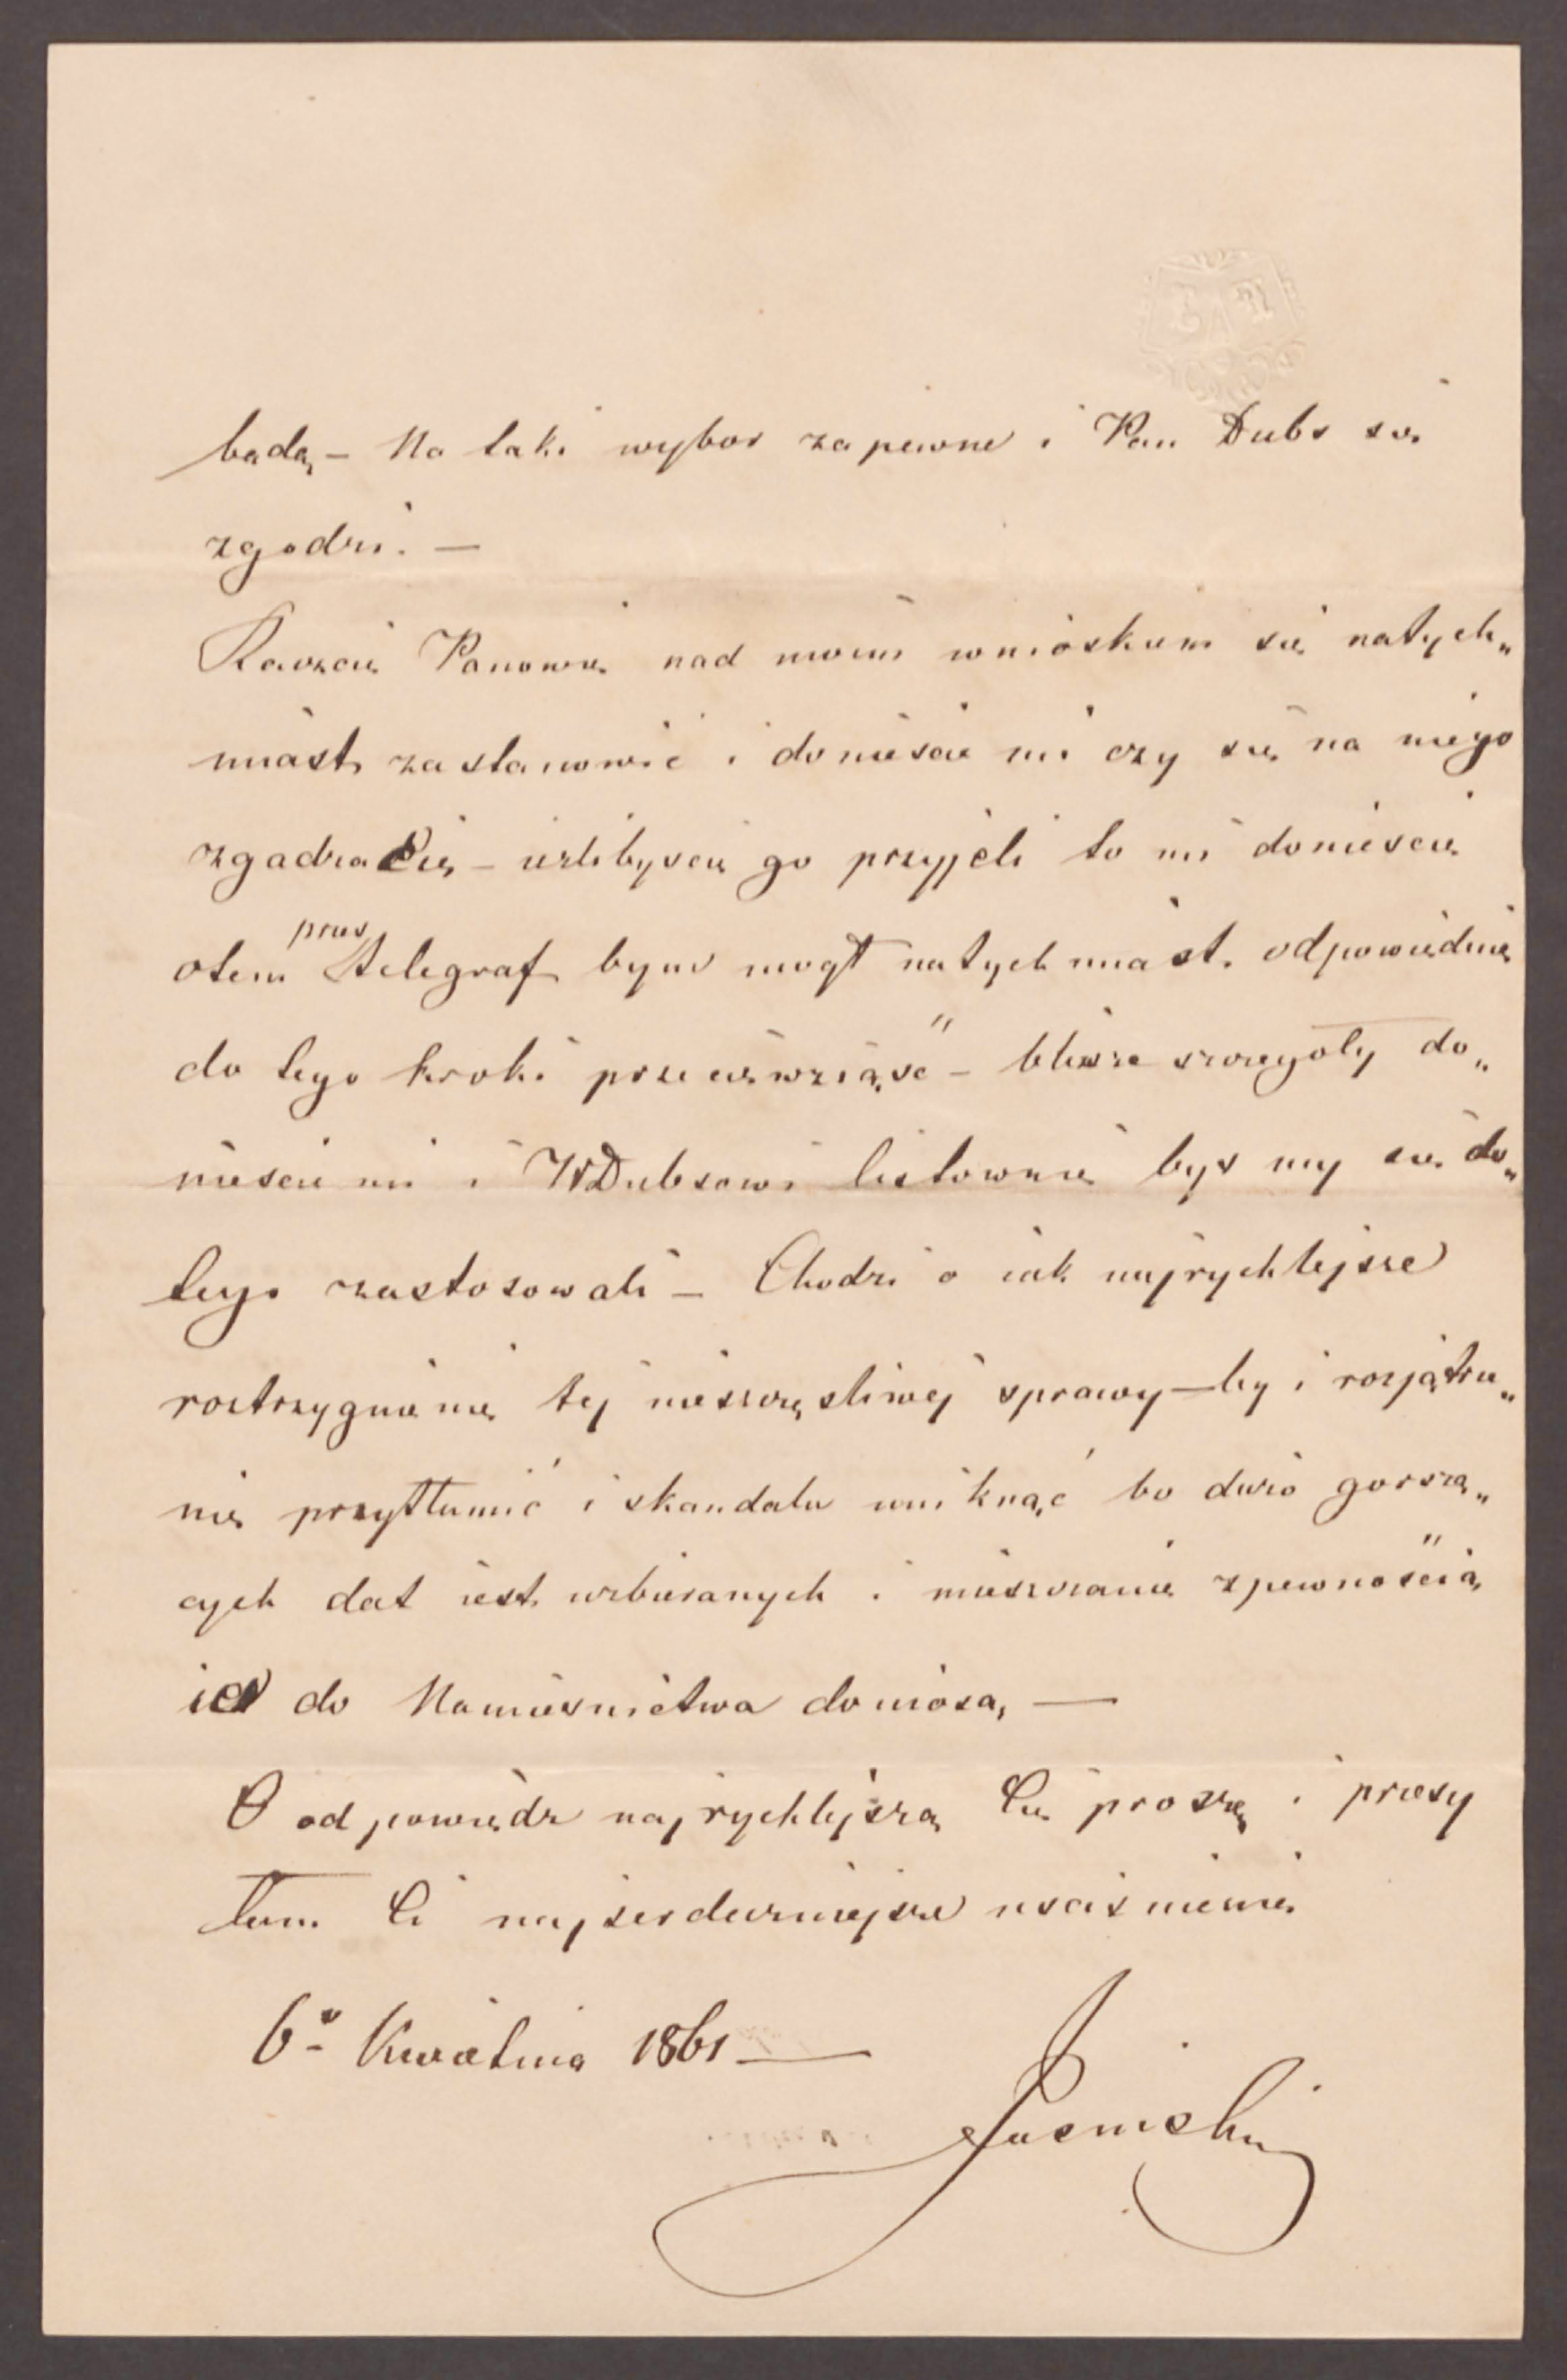 będą — Na taki wybor zapewne i Pan Dubs się
zgodzi. —
Raczcie Panowie nad moim wnioskiem się natych„
miast zastanowić i doniescie mi czy się na niego
zgadzacie — ieżlibyscie go przyjęli to mi doniescie
otem przez telegraf bym mogł natychmiast odpowiednie
do tego kroki przedsięwziąść — bliższe szczegoły do„
niescie mi i WDubsowi listownie bysmy się do„
tego zastosowali — Chodzi o iak najrychlejsze
roztrzygnienie tej nieszczęsliwej sprawy — by i rozjątrze„
nie przytłumić i skandalu uniknąć bo duzo gorszą„
cych dat iest uzbieranych i mieszczanie zpewnością
ie do Namiesnictwa doniosą, —
O odpowiedz najrychlejszą Cię proszę i przesy
łam Ci najserdeczniejsze usciśnienie
6º Kwietnia 1861 —